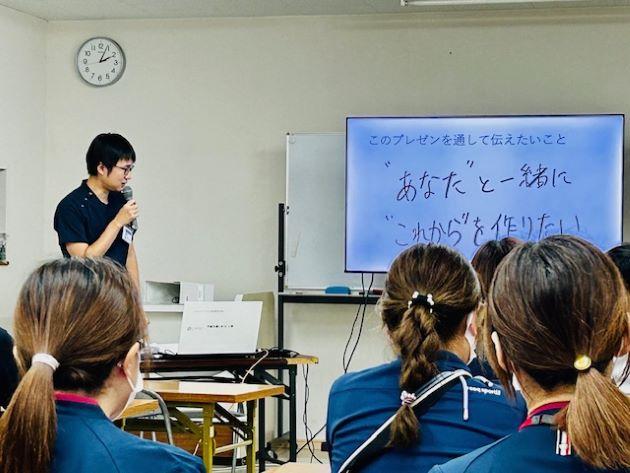 このプレゼンを通して伝えたいこと
"あなた"と一緒に
"これから"を作りたい